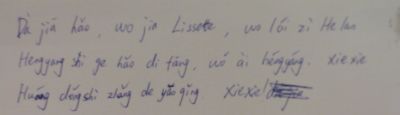 Dà jiā hǎo, wo jia Lissette, wo lái zì Helan
Hengyang shi ge hǎo dì fāng, wǒ ài héngyáng. xiexie
Huáng dǒngshi zhǎng de yāo qǐng. xiexie!